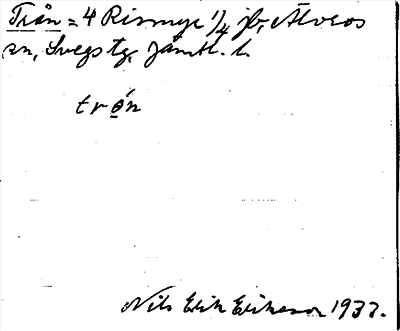 Trån = 4 Rismyr 1/4 jb, Älvros
sn, Svegs tg, Jämtl. l.
trọ́n
Nils Erik Eriksson 1937.